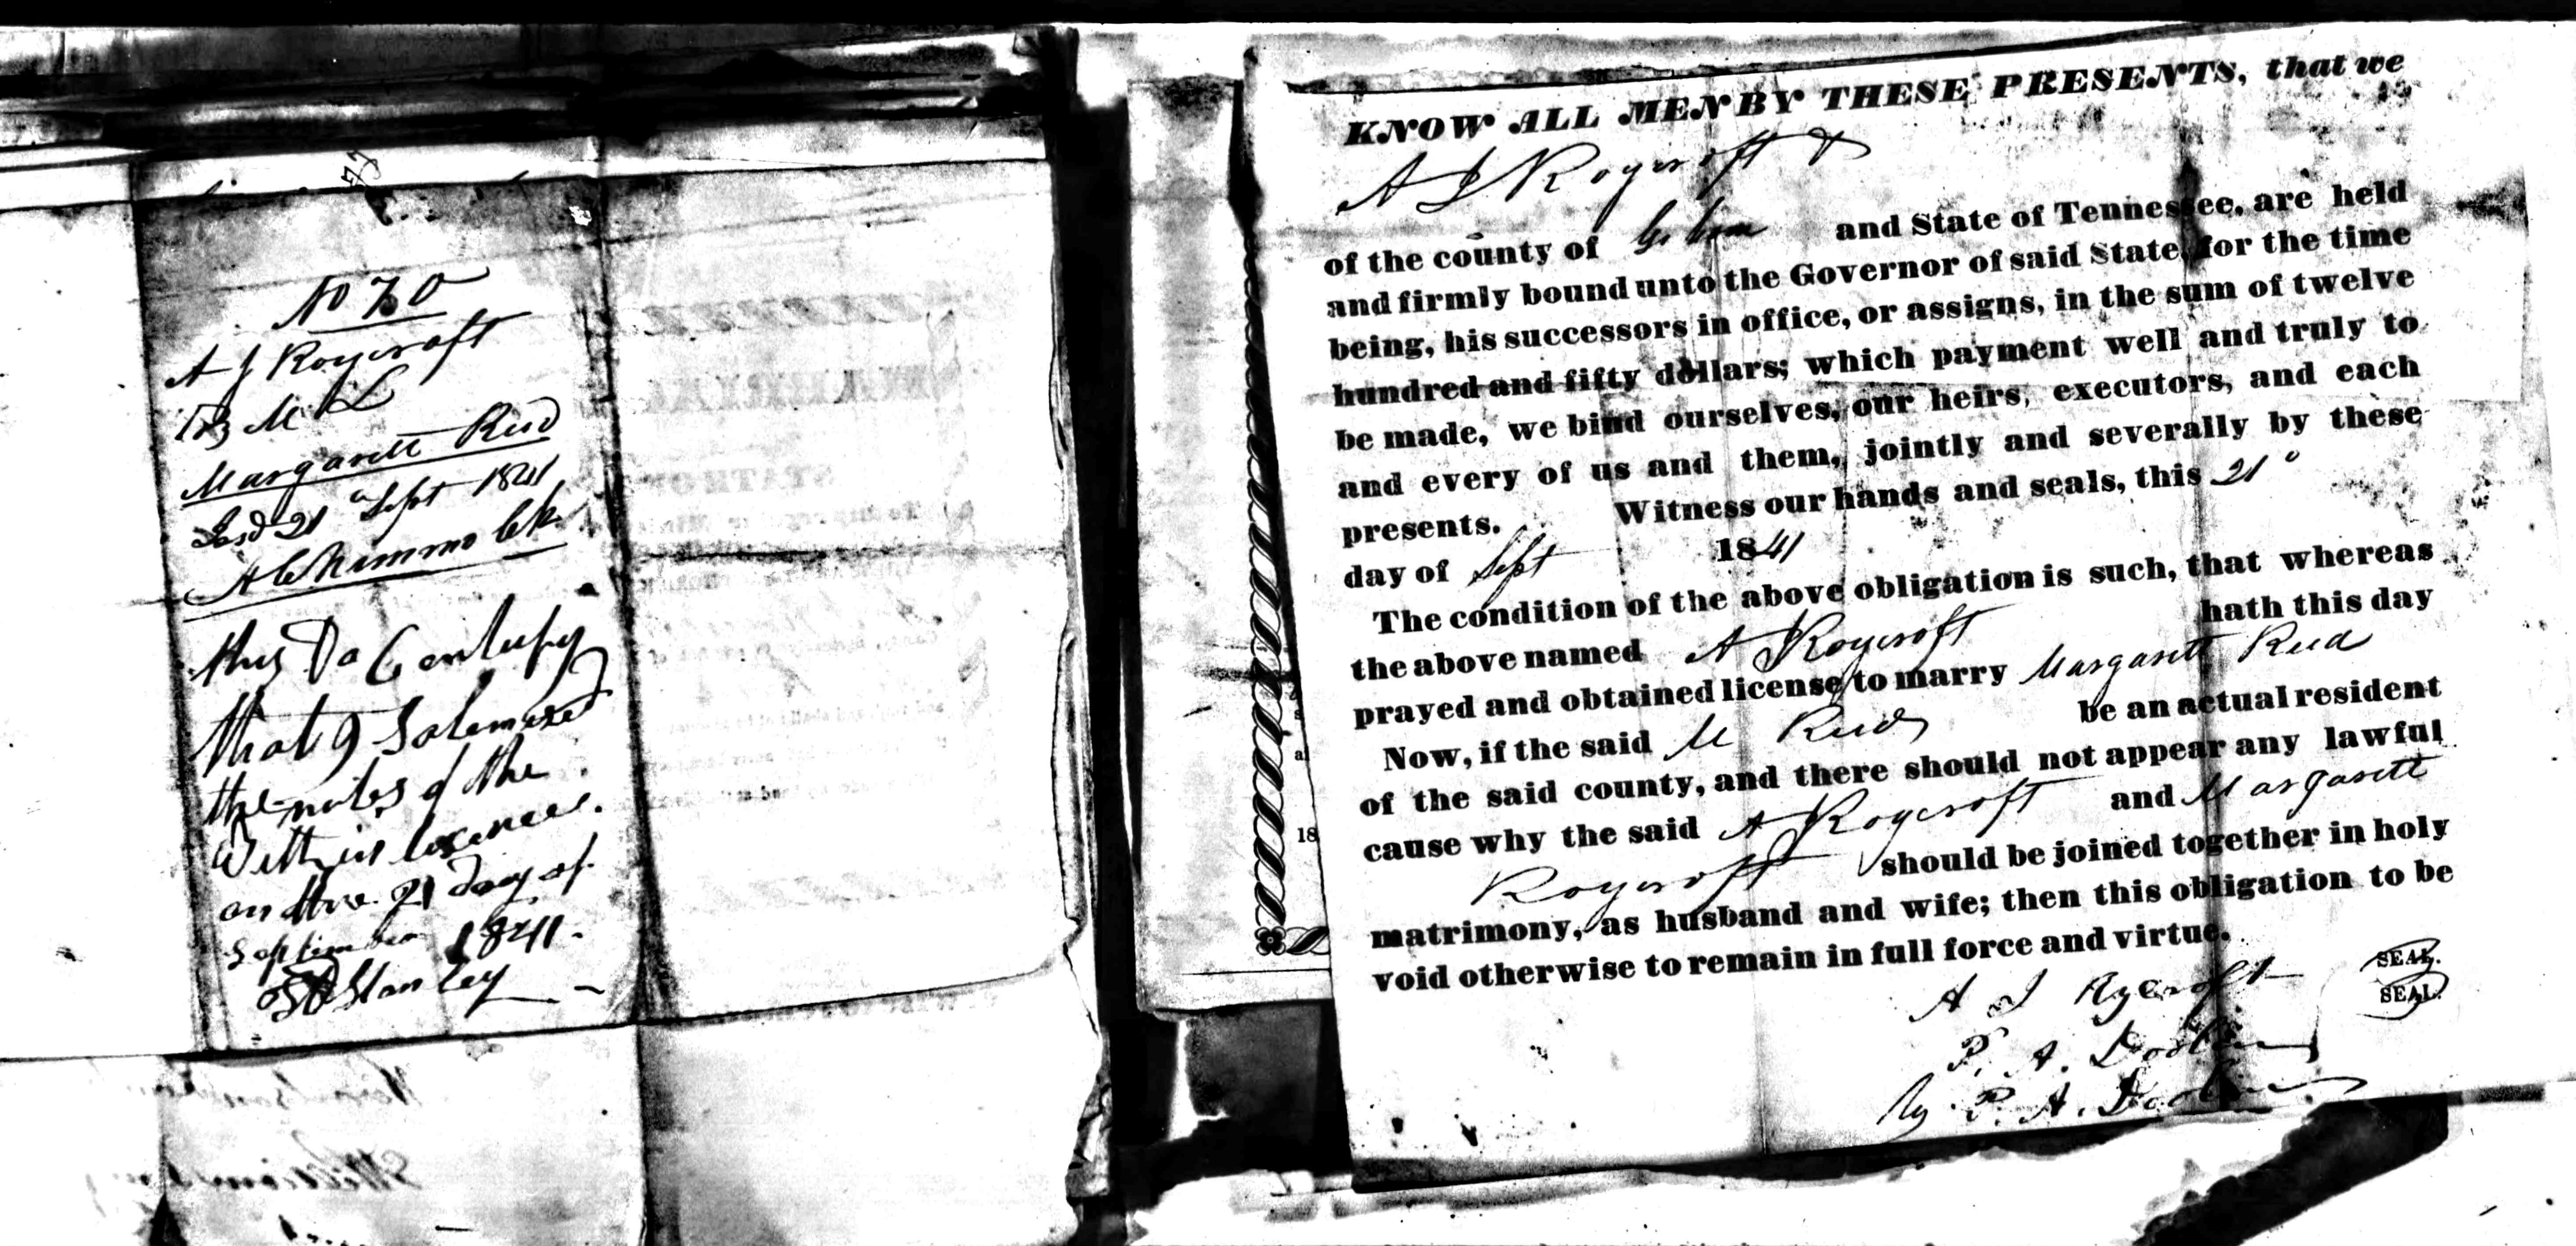 No 70
A J Roycroft
To M L
Margarett Reid
Issd 21" Sept 1841
A C Nimmo Clk
this Do Certify
that I Solemised
the rites of the
Within lisence
on the 21 day of
September 1841
Stanley
KNOW ALL MEN BY THESE PRESENTS, that we
A J Roycroft &
of the county of Gibson and State of Tennessee, are held
and firmly bound unto the Governor of said State, for the time
being, his successors in office, or assigns, in the sum of twelve
hundred and fifty dollars; which payment well and truly to
be made, we bind ourselves, our heirs, executors, and each
and every of us and them, jointly and severally by these
presents. Witness our hands and seals, this 21"
day of Sept 1841
The condition of the above obligation is such, that whereas
the above named A J Roycroft hath this day
prayed and obtained license to marry Margarett Reid
Now, if the said M Reid be an actual resident
of the said county, and there should not appear any lawful
cause why the said A Roycroft and Margarett
Roycroft should be joined together in holy
matrimony, as husband and wife; then this obligation to be
void otherwise to remain in full force and virtue.
A J Rycroft SEAL.
P. A. SEAL.
By P. A.
18